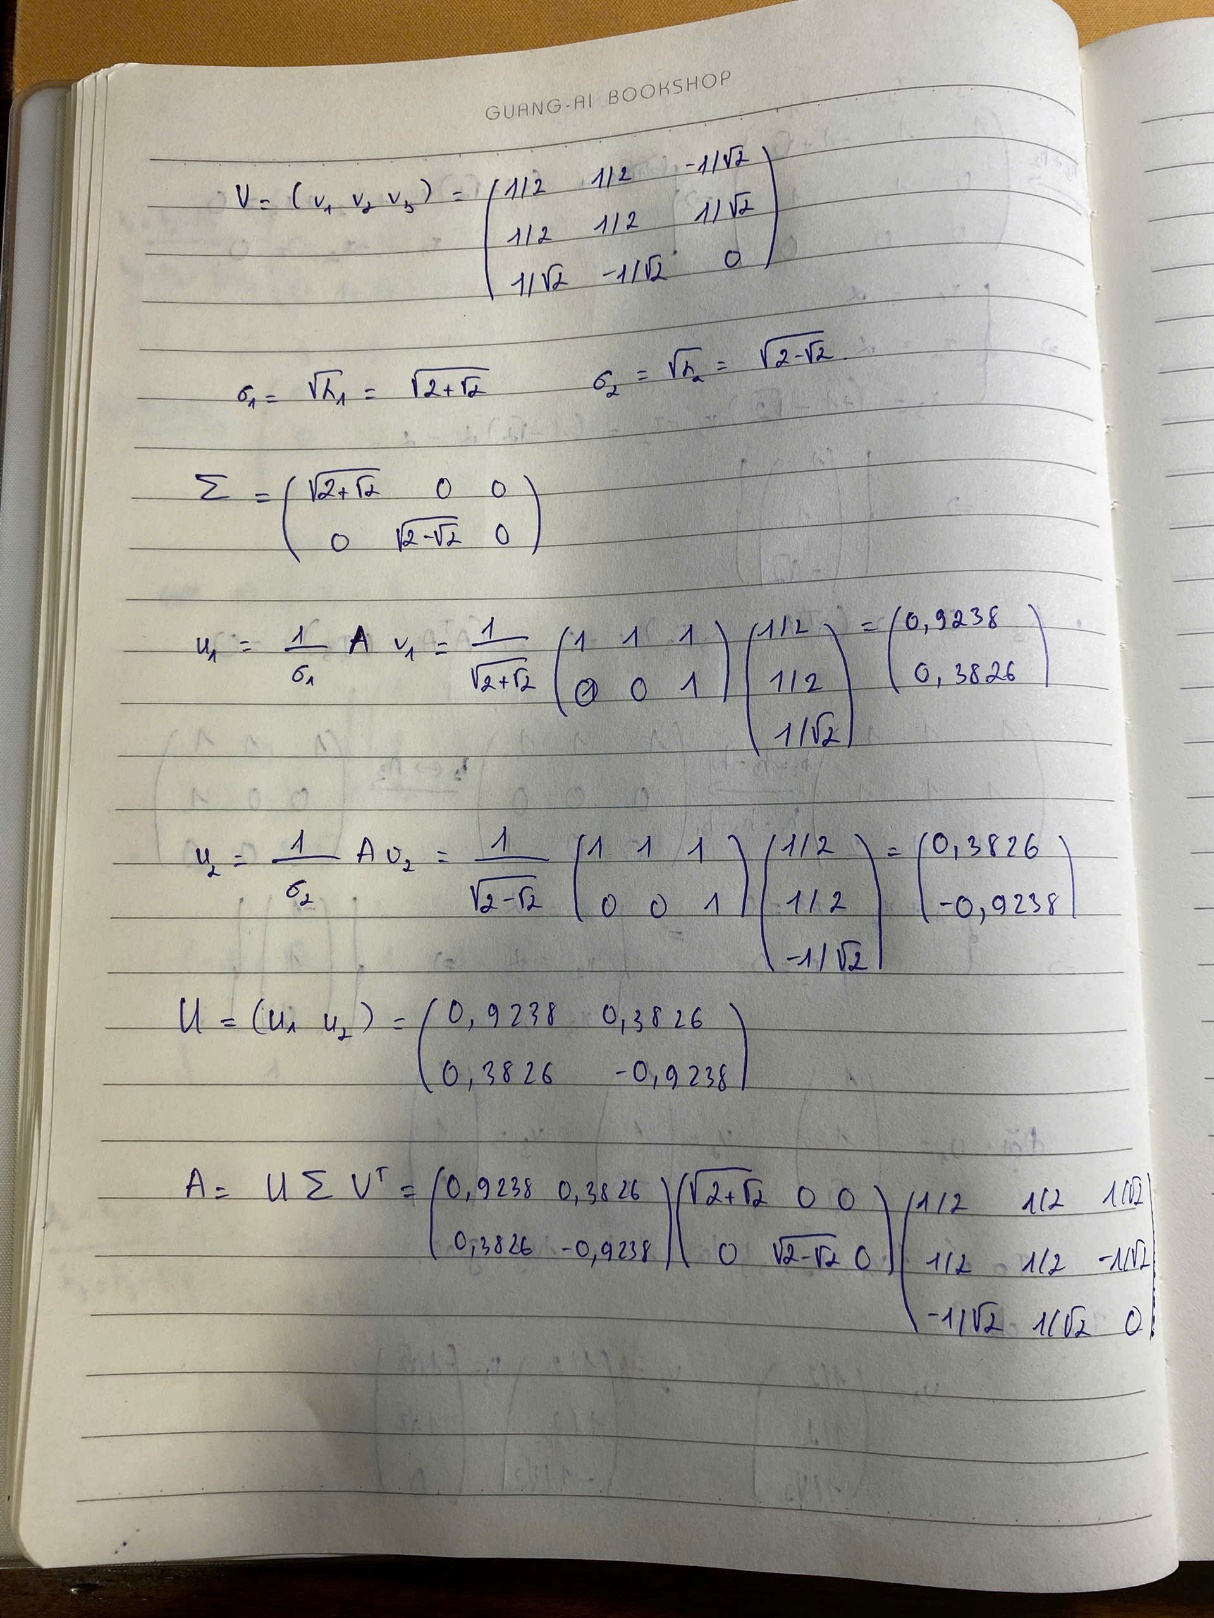 GUANG-AI BOOKSHOP
V = (v₁ v₂ v₃) = (1/2 1/2 -1/√2
1/2 1/2 1/√2
1/√2 -1/√2 0)
σ₁ = √λ₁ = √(2+√2) σ₂ = √λ₂ = √(2-√2)
Σ = (√(2+√2) 0 0
0 √(2-√2) 0)
u₁ = 1/σ₁ A v₁ = 1/√(2+√2) (1 1 1 / 0 0 1) (1/2 / 1/2 / 1/√2) = (0,9238 / 0,3826)
u₂ = 1/σ₂ A v₂ = 1/√(2-√2) (1 1 1 / 0 0 1) (1/2 / 1/2 / -1/√2) = (0,3826 / -0,9238)
U = (u₁ u₂) = (0,9238 0,3826
0,3826 -0,9238)
A = U Σ Vᵀ = (0,9238 0,3826 / 0,3826 -0,9238) (√(2+√2) 0 0 / 0 √(2-√2) 0) (1/2 1/2 1/√2 / 1/2 1/2 -1/√2 / -1/√2 1/√2 0)